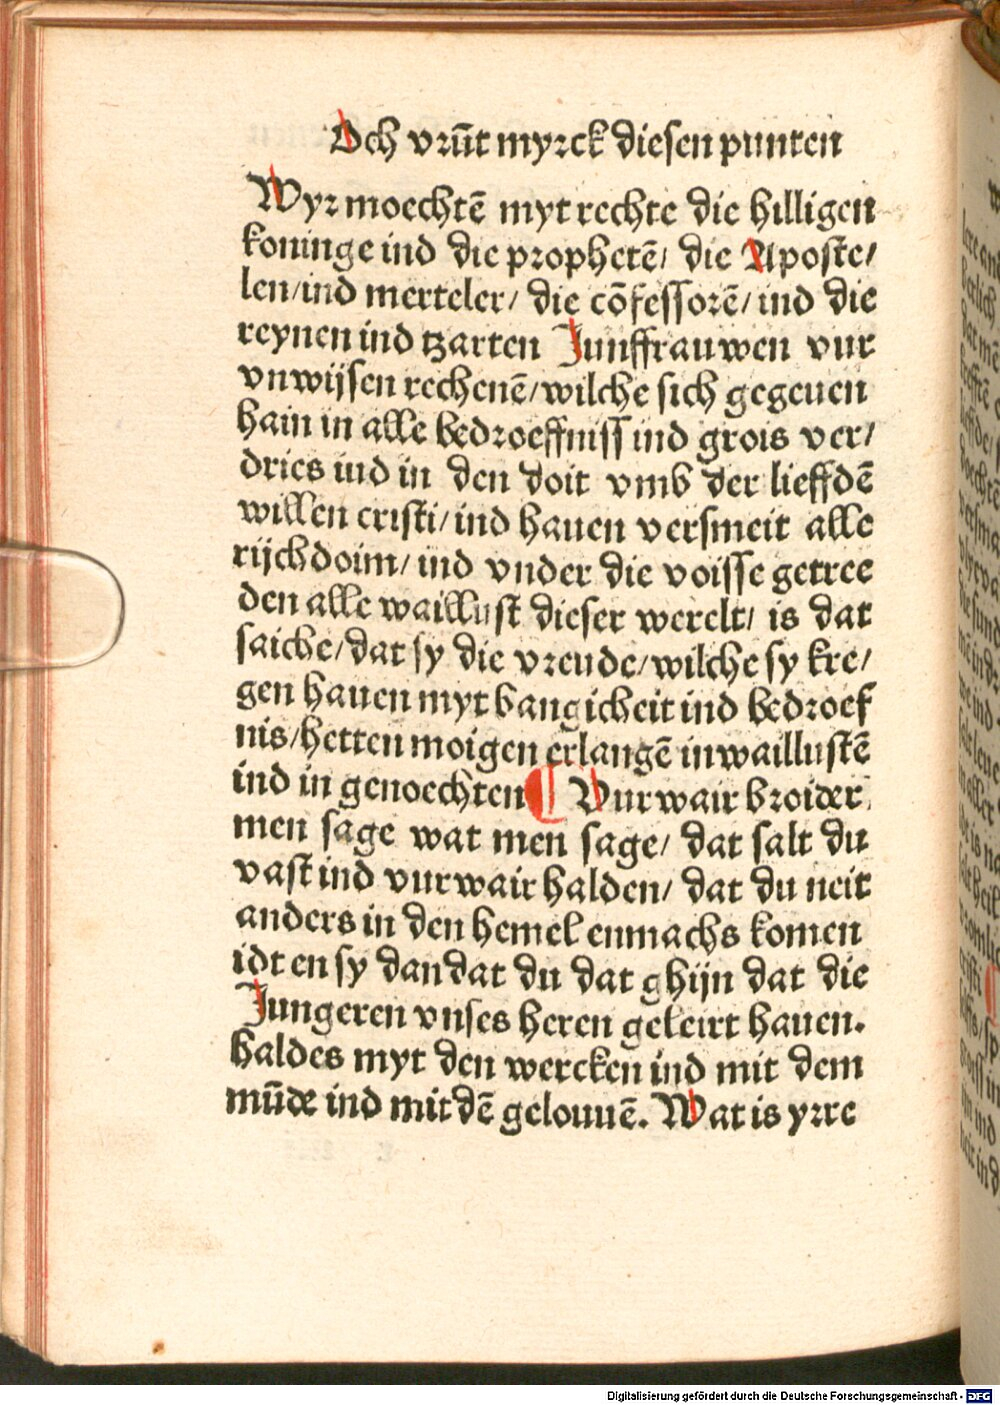 Och vrūt myrck diesen punten
Wyr moechtē myt rechte die hilligen
koninge ind die prophetē/ die Aposte/
len/ind merteler/ die cōfessorē/ind die
reynen ind tzarten Junffrauwen vur
vnwijsen rechenē/wilche sich gegeuen
hain in alle bedroeffniss ind grois ver/
dries ind in den doit vmb der lieffdē
willen cristi/ind hauen versmeit alle
rijchdoim/ind vnder die voisse getree
den alle waillust dieser werelt/ is dat
saiche/dat sy die vreude/wilche sy kre/
gen hauen myt bangicheit ind bedroef
nis/hetten moigen erlangē in waillustē
ind in genoechten ¶ Vurwair broider
men sage wat men sage/ dat salt du
vast ind vurwair halden/ dat du neit
anders in den hemel enmachs komen
idt en sy dan dat du dat ghijn dat die
Jungeren vnses heren geleirt hauen.
haldes myt den wercken ind mit dem
mūde ind mit dē gelouuē. Wat is yrre
Digitalisierung gefördert durch die Deutsche Forschungsgemeinschaft - DFG